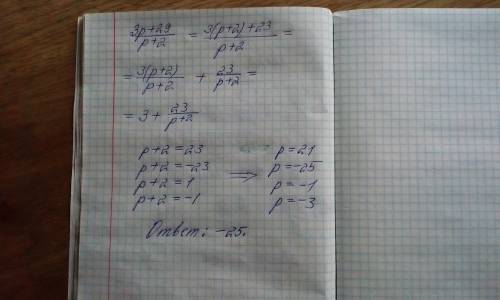 (3p+29)/(p+2) = (3(p+2)+23)/(p+2) =
= 3(p+2)/(p+2) + 23/(p+2) =
= 3 + 23/(p+2)
p+2 = 23
p+2 = -23
p+2 = 1
p+2 = -1
⇒
p = 21
p = -25
p = -1
p = -3
Ответ: -25.